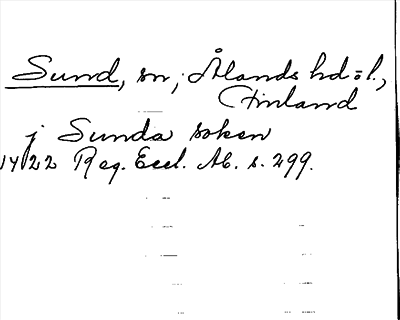 Sund, sn, Ålands hd o l.,
Finland
j Sunda soken
1422 Reg. Eccl. Ab. s. 299.